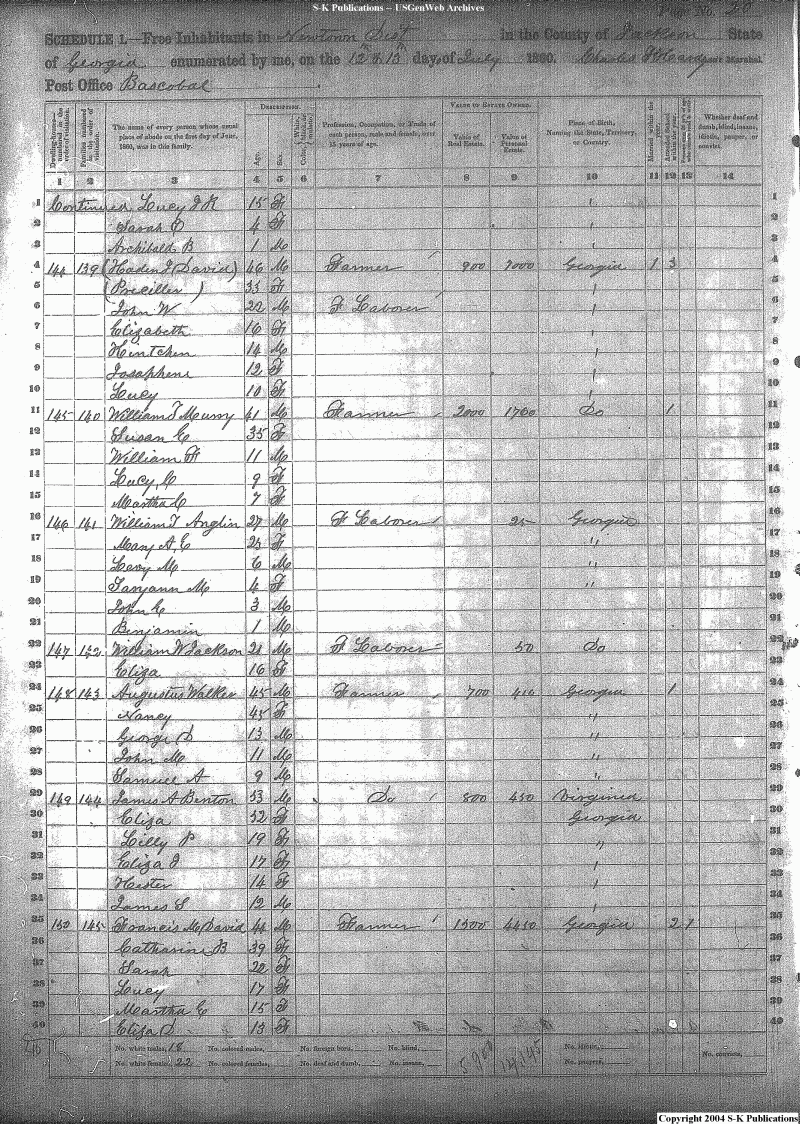 S-K Publications – USGenWeb Archives
Page No. 20
SCHEDULE 1.—Free Inhabitants in Newtown Dist in the County of Jackson State
of Georgia enumerated by me, on the 12 & 13th day of July 1860. Charles Ass't Marshal.
Post Office Bascobal
Dwelling-houses—numbered in the order of visitation.
Families numbered in the order of visitation.
The name of every person whose usual place of abode on the first day of June, 1860, was in this family.
DESCRIPTION.
Age.
Sex.
Color, White, black, or mulatto.
Profession, Occupation, or Trade of each person, male and female, over 15 years of age.
VALUE OF ESTATE OWNED.
Value of Real Estate.
Value of Personal Estate.
Place of Birth, Naming the State, Territory, or Country.
Married within the year.
Attended School within the year.
Whether deaf and dumb, blind, insane, idiotic, pauper, or convict.
1 2 3 4 5 6 7 8 9 10 11 12 13 14
1 Continued Lucy J R 15 F " 1
2 Sarah C 4 F " 2
3 Archibald B 1 M " 3
4 144 139 (Haden J David) 46 M Farmer 900 7000 Georgia 1 3 4
5 (Preciller ) 33 F " 5
6 John W 22 M F Laborer " 6
7 Elizabeth 16 F " 7
8 14 M " 8
9 Josaphene 12 F " 9
10 Lucy 10 F " 10
11 145 140 William T Murry 41 M Farmer 2000 1700 Do 1 11
12 Susan C 35 F 12
13 William H 11 M 13
14 Lucy C 9 F 14
15 Martha C 7 F 15
16 146 141 William T Anglin 27 M F Laborer 25 Georgia 16
17 Mary A E 25 F " 17
18 Levy M 6 M " 18
19 M 4 F " 19
20 John C 3 M 20
21 Benjamin 1 M 21
22 147 142 William W Jackson 21 M F Laborer 50 Do 22
23 Eliza 16 F 23
24 148 143 Augustus Walker 45 M Farmer 700 410 Georgia 1 24
25 Nancy 45 F " 25
26 George D 13 M " 26
27 John M 11 M " 27
28 Samuel A 9 M " 28
29 149 144 James A Benton 53 M Do 800 450 Virginia 29
30 Eliza 52 F Georgia 30
31 Lilly P 19 F " 31
32 Eliza J 17 F " 32
33 Hester 14 F " 33
34 James S 12 M " 34
35 150 145 Francis M David 44 M Farmer 1500 4450 Georgia 2 1 35
36 Catharine B 39 F 36
37 Sarah 22 F 37
38 Lucy 17 F 38
39 Martha E 15 F 39
40 Eliza D 13 F 40
No. white males, 18 No. colored males, No. foreign born, No. blind, 5900 No. idiotic, No. convicts,
No. white females, 22 No. colored females, No. deaf and dumb, No. insane, No. paupers,
Copyright 2004 S-K Publications